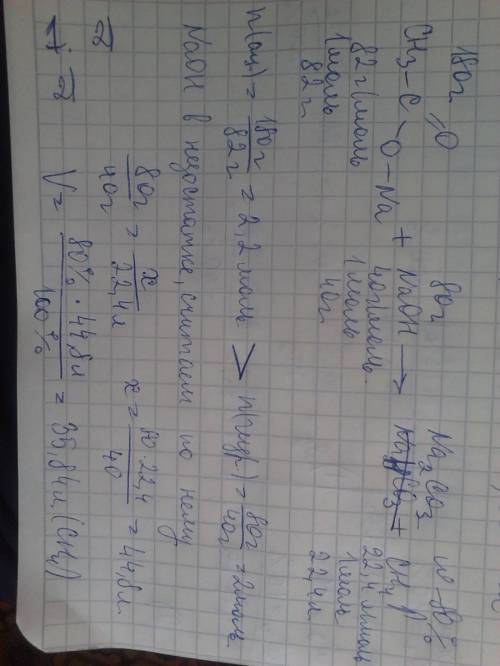 180г 80г ω-80%
CH₃-C=O-O-Na + NaOH → Na₂CO₃ + CH₄↑
82г/моль 40г/моль 22,4л/моль
1моль 1моль 1моль
82г 40г 22,4л
n(ац.) = 180г/82г = 2,2моль > n(гидр.) = 80г/40г = 2моль
NaOH в недостатке, считаем по нему
80г/40г = x/22,4л x = 80·22,4/40 = 44,8л
V = 80%·44,8л/100% = 35,84л (CH₄)